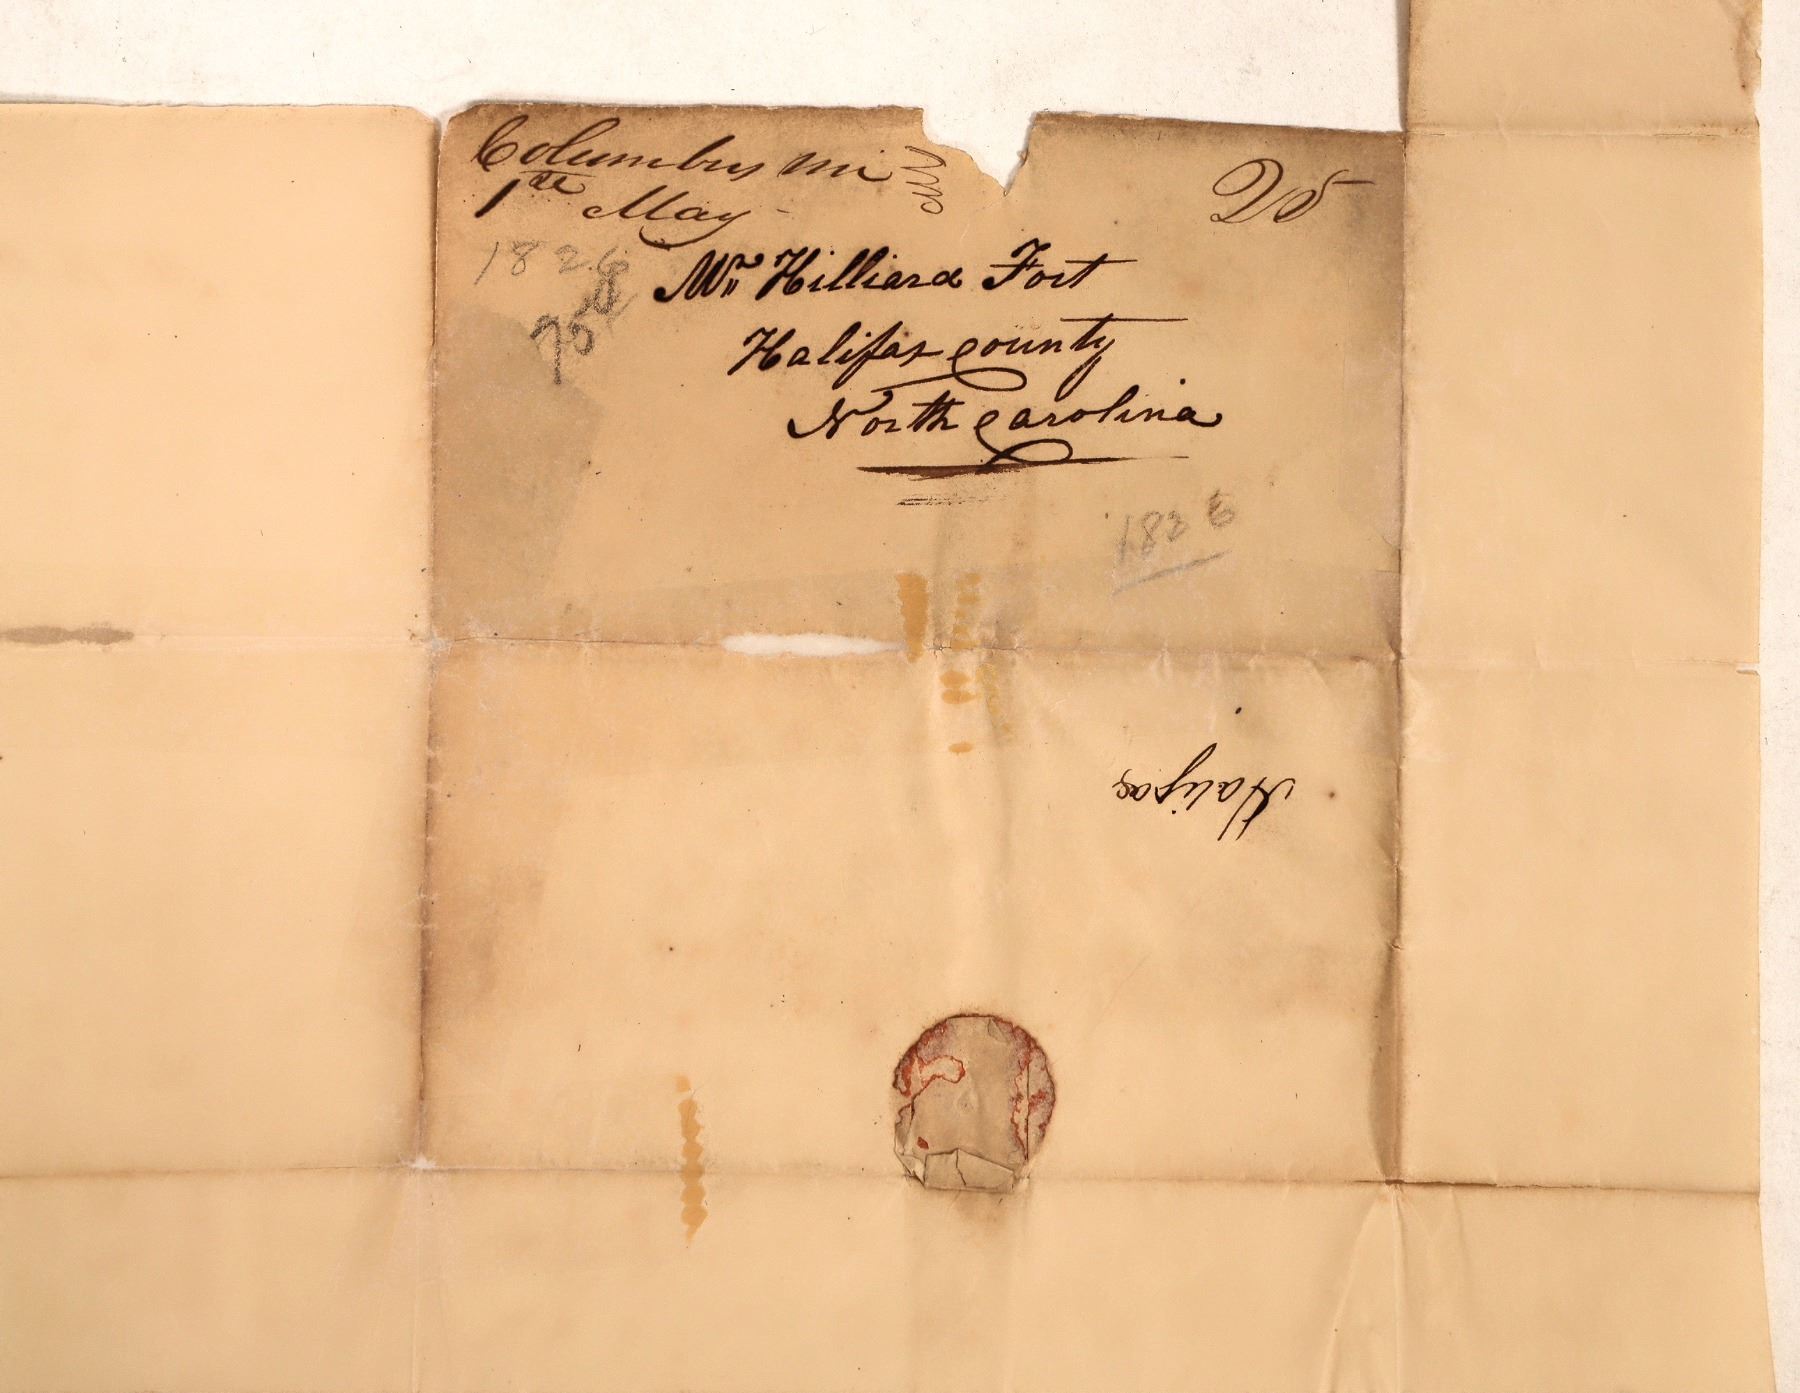 Columbus Mi
1st May
25
1826
Mr Hilliard Fort
75
Halifax County
North Carolina
1836
Halifax